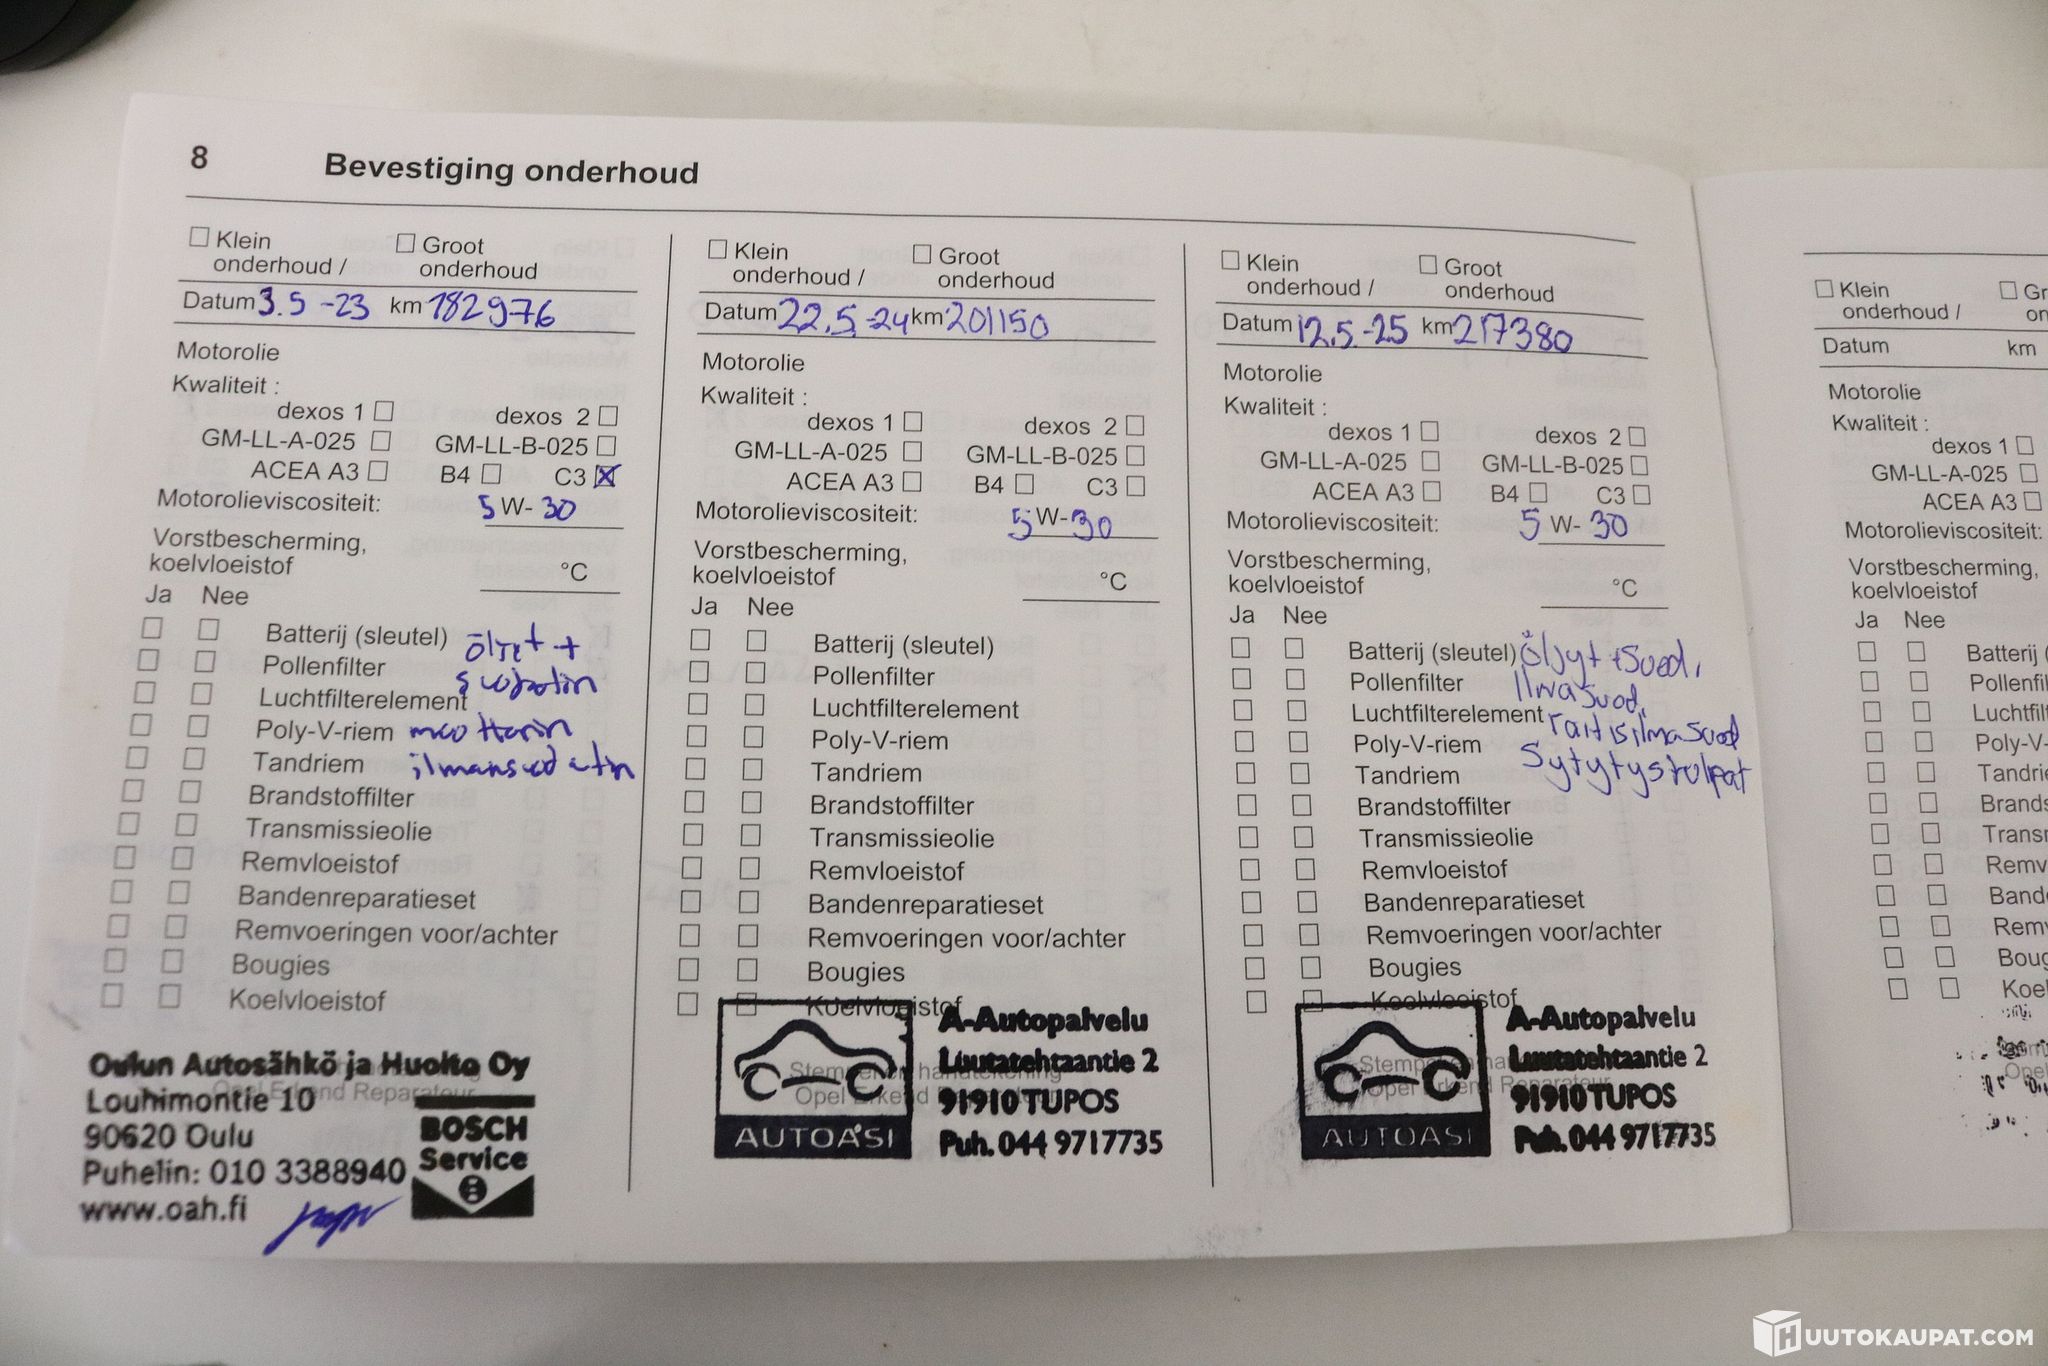 8 Bevestiging onderhoud
☐ Klein onderhoud / ☐ Groot onderhoud
Datum 3.5 -23 km 182976
Motorolie
Kwaliteit :
dexos 1 ☐ dexos 2 ☐
GM-LL-A-025 ☐ GM-LL-B-025 ☐
ACEA A3 ☐ B4 ☐ C3 ☒
Motorolieviscositeit: 5 W- 30
Vorstbescherming,
koelvloeistof °C
Ja Nee
☐ ☐ Batterij (sleutel)
☐ ☐ Pollenfilter
☐ ☐ Luchtfilterelement
☐ ☐ Poly-V-riem moottorin
☐ ☐ Tandriem ilmansuodatin
☐ ☐ Brandstoffilter
☐ ☐ Transmissieolie
☐ ☐ Remvloeistof
☐ ☐ Bandenreparatieset
☐ ☐ Remvoeringen voor/achter
☐ ☐ Bougies
☐ ☐ Koelvloeistof
Oulun Autosähkö ja Huolto Oy
Louhimontie 10
90620 Oulu
Puhelin: 010 3388940
www.oah.fi
BOSCH
Service
☐ Klein onderhoud / ☐ Groot onderhoud
Datum 22.5.-24 km 201150
Motorolie
Kwaliteit :
dexos 1 ☐ dexos 2 ☐
GM-LL-A-025 ☐ GM-LL-B-025 ☐
ACEA A3 ☐ B4 ☐ C3 ☐
Motorolieviscositeit: 5 W- 30
Vorstbescherming,
koelvloeistof °C
Ja Nee
☐ ☐ Batterij (sleutel)
☐ ☐ Pollenfilter
☐ ☐ Luchtfilterelement
☐ ☐ Poly-V-riem
☐ ☐ Tandriem
☐ ☐ Brandstoffilter
☐ ☐ Transmissieolie
☐ ☐ Remvloeistof
☐ ☐ Bandenreparatieset
☐ ☐ Remvoeringen voor/achter
☐ ☐ Bougies
☐ ☐ Koelvloeistof
Stempel en handtekening
Opel Erkend Reparateur
AUTOASI
A-Autopalvelu
Luutatehtaantie 2
91910 TUPOS
Puh. 044 9717735
☐ Klein onderhoud / ☐ Groot onderhoud
Datum 12.5.-25 km 217380
Motorolie
Kwaliteit :
dexos 1 ☐ dexos 2 ☐
GM-LL-A-025 ☐ GM-LL-B-025 ☐
ACEA A3 ☐ B4 ☐ C3 ☐
Motorolieviscositeit: 5 W- 30
Vorstbescherming,
koelvloeistof °C
Ja Nee
☐ ☐ Batterij (sleutel) öljyt+suod,
☐ ☐ Pollenfilter Ilmasuod,
☐ ☐ Luchtfilterelement raitisilmasuod
☐ ☐ Poly-V-riem
☐ ☐ Tandriem Sytytystulpat
☐ ☐ Brandstoffilter
☐ ☐ Transmissieolie
☐ ☐ Remvloeistof
☐ ☐ Bandenreparatieset
☐ ☐ Remvoeringen voor/achter
☐ ☐ Bougies
☐ ☐ Koelvloeistof
AUTOASI
A-Autopalvelu
Luutatehtaantie 2
91910 TUPOS
Puh. 044 9717735
☐ Klein onderhoud /
Datum km
Motorolie
Kwaliteit :
dexos 1 ☐
GM-LL-A-025 ☐
ACEA A3 ☐
Motorolieviscositeit:
Vorstbescherming,
koelvloeistof
Ja Nee
☐ ☐ Batterij
HUUTOKAUPAT.COM